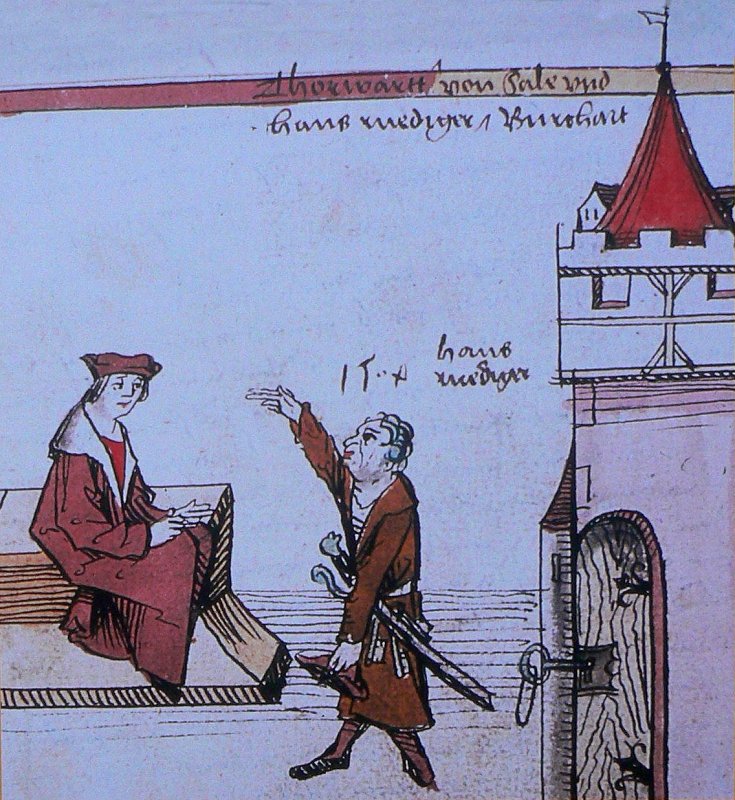 Thorwartt / von Sale vnd
hans ruediger / Burchart
hans
ruediger